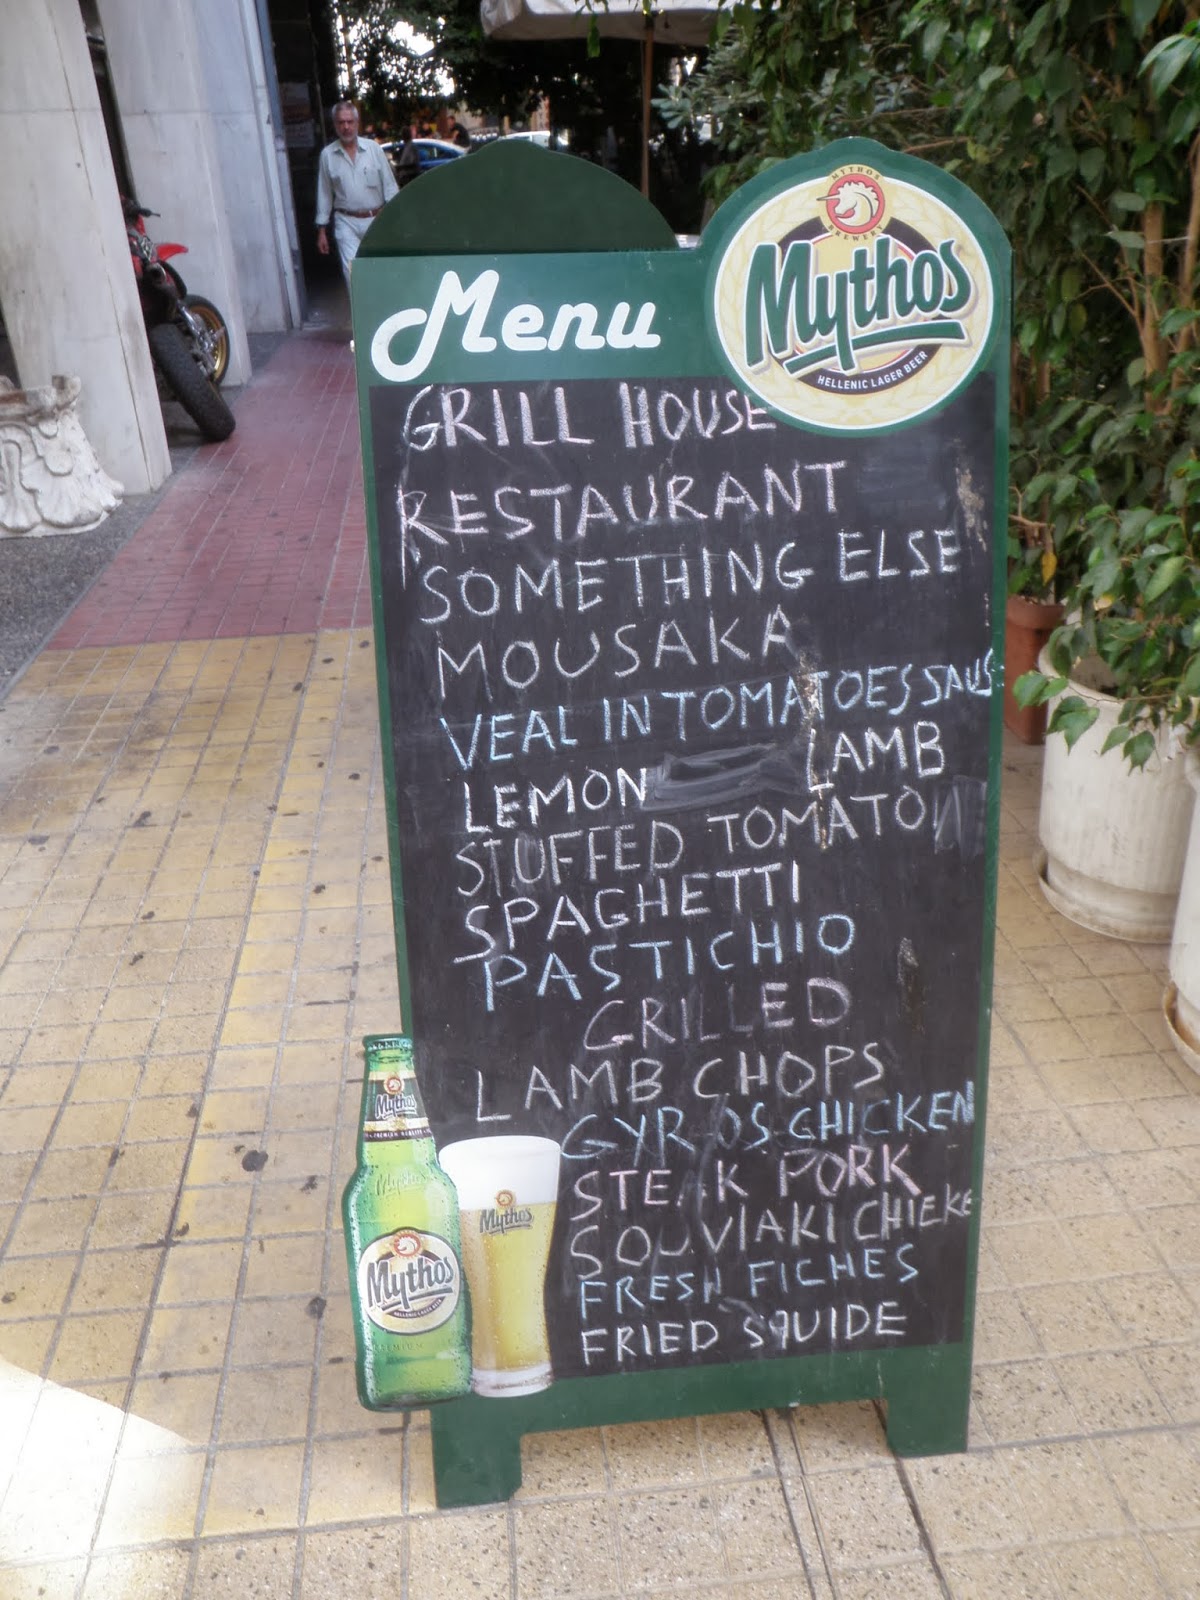 MYTHOS
BREWERY
Mythos
HELLENIC LAGER BEER
Menu
GRILL HOUSE
RESTAURANT
SOMETHING ELSE
MOUSAKA
VEAL IN TOMATOES SAUS
LEMON LAMB
STUFFED TOMATO
SPAGHETTI
PASTICHIO
GRILLED
LAMB CHOPS
GYROS CHICKEN
STEAK PORK
SOUVLAKI CHIEKE
FRESH FICHES
FRIED SQUIDE
Mythos
Mythos
Mythos
Mythos
HELLENIC LAGER BEER